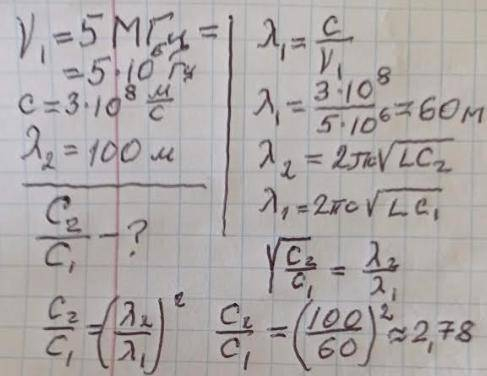 ν₁ = 5 МГц =
= 5·10⁶ Гц
c = 3·10⁸ м/с
λ₂ = 100 м
C₂/C₁ – ?
λ₁ = c/ν₁
λ₁ = 3·10⁸/5·10⁶ = 60 м
λ₂ = 2πc√LC₂
λ₁ = 2πc√LC₁
√C₂/C₁ = λ₂/λ₁
C₂/C₁ = (λ₂/λ₁)²
C₂/C₁ = (100/60)² ≈ 2,78